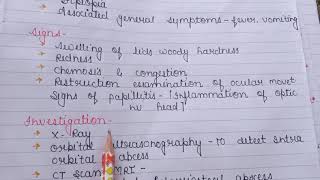 → Diplopia
→ Associated general symptoms - fever, vomiting
Signs -
→ Swelling of lids woody hardness
→ Redness
→ Chemosis & congestion
→ Restruction examination of ocular movet
Signs of papillitis - [Inflammation of optic
nv head]
Investigation -
→ X-Ray
→ Orbital ultrasonography - to detect intra
orbital abcess
→ CT Scan MRI -
abcess